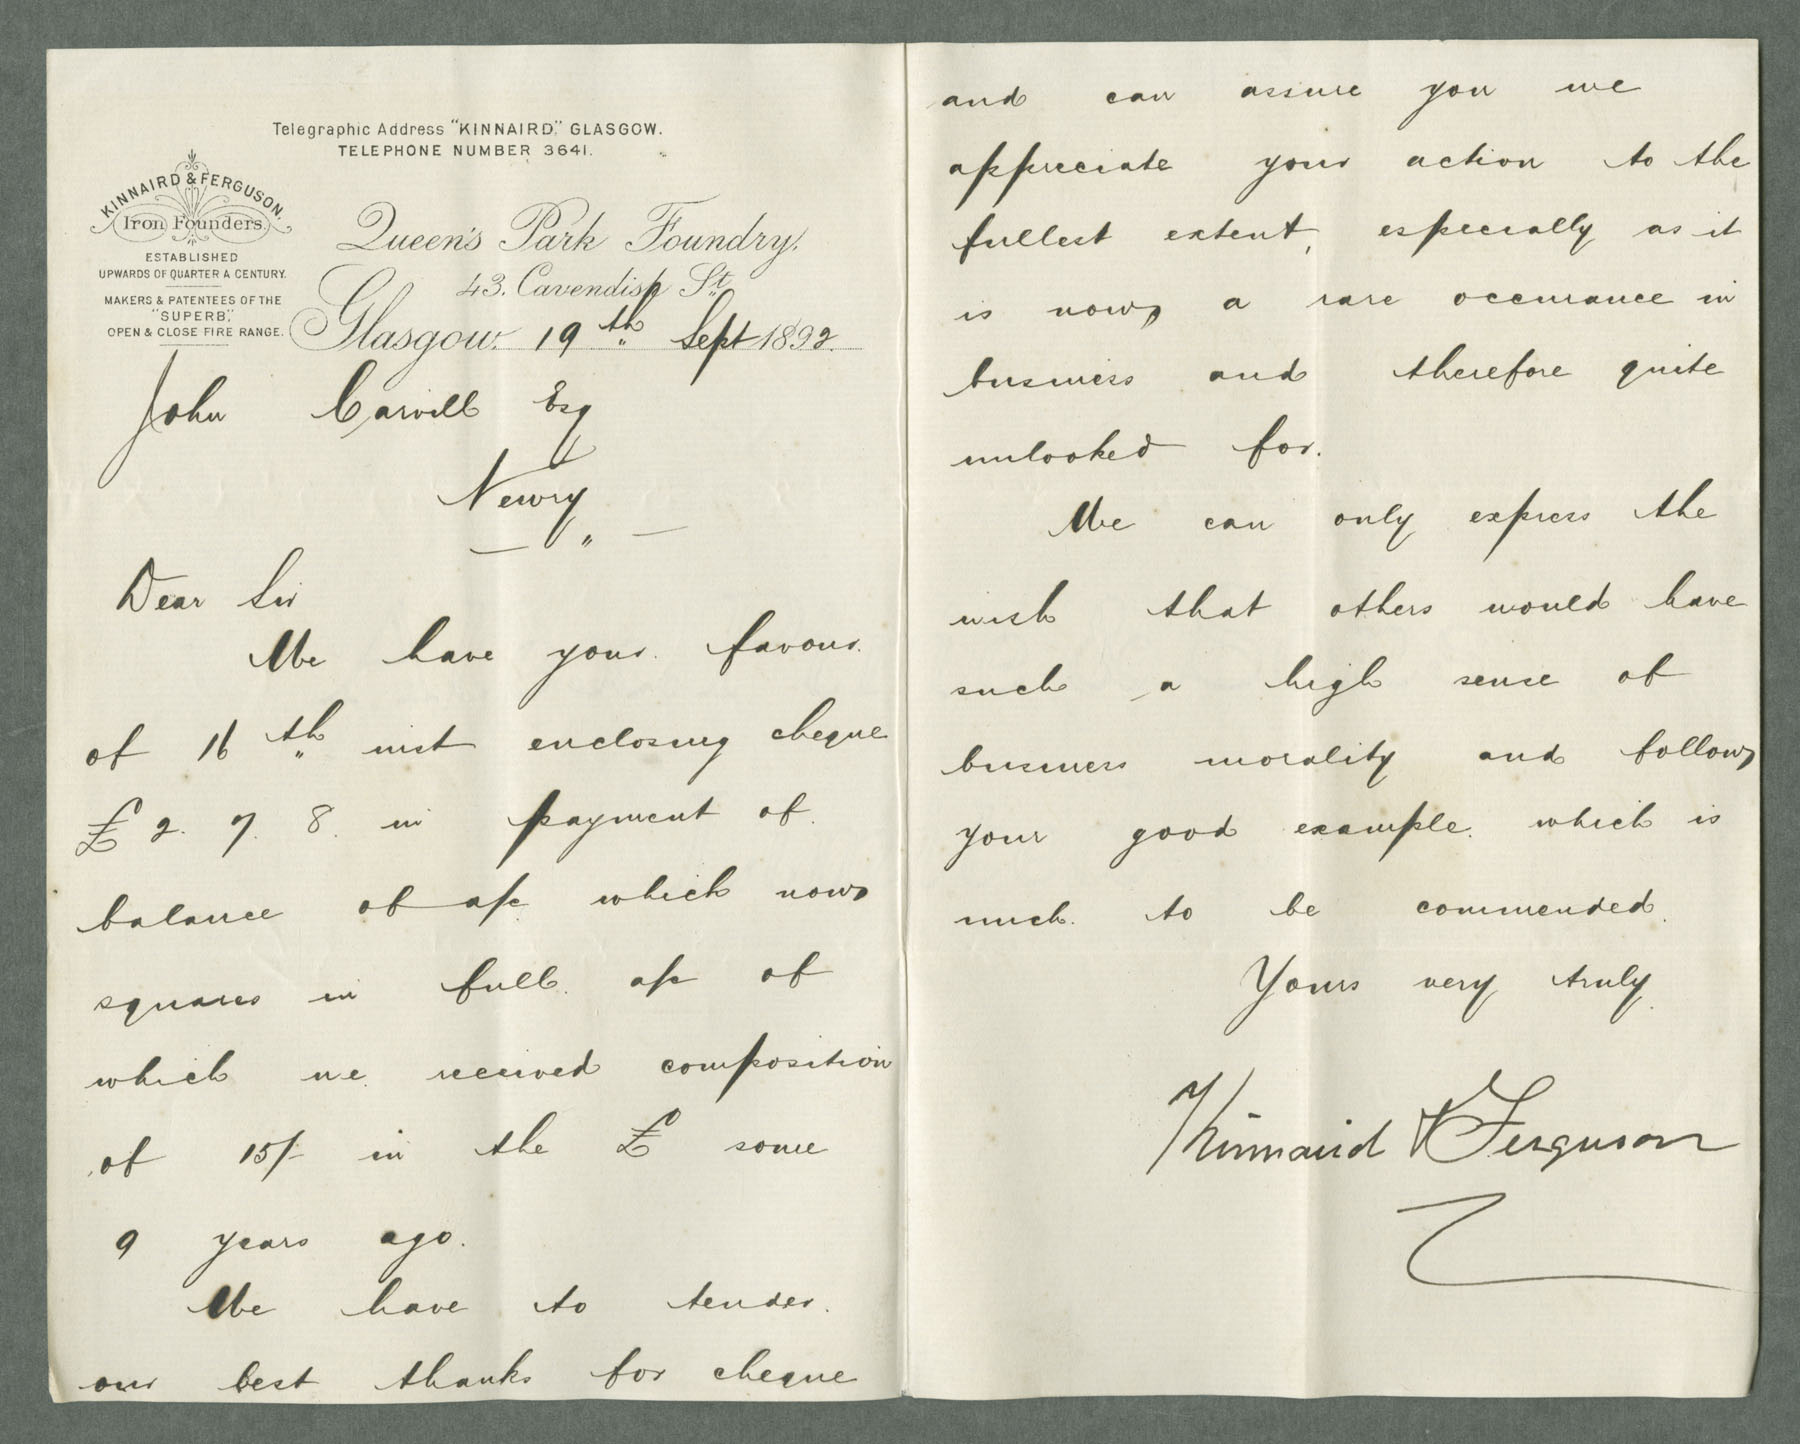 Telegraphic Address "KINNAIRD," GLASGOW.
TELEPHONE NUMBER 3641.
KINNAIRD & FERGUSON.
Iron Founders.
ESTABLISHED
UPWARDS OF QUARTER A CENTURY.
MAKERS & PATENTEES OF THE
"SUPERB,"
OPEN & CLOSE FIRE RANGE.
Queen's Park Foundry,
43. Cavendish St.
Glasgow. 19th Sept 1892.
John Carvill Esq
Newry
Dear Sir
We have your favour
of 16th inst enclosing cheque
£2. 7. 8. in payment of
balance of a/c which now
squares in full a/c of
which we received composition
of 15/- in the £ some
9 years ago.
We have to tender
our best thanks for cheque
and can assure you we
appreciate your action to the
fullest extent, especially as it
is now a rare occurance in
business and therefore quite
unlooked for.
We can only express the
wish that others would have
such a high sense of
business morality and follow
your good example which is
much to be commended.
Yours very truly
Kinnaird & Ferguson